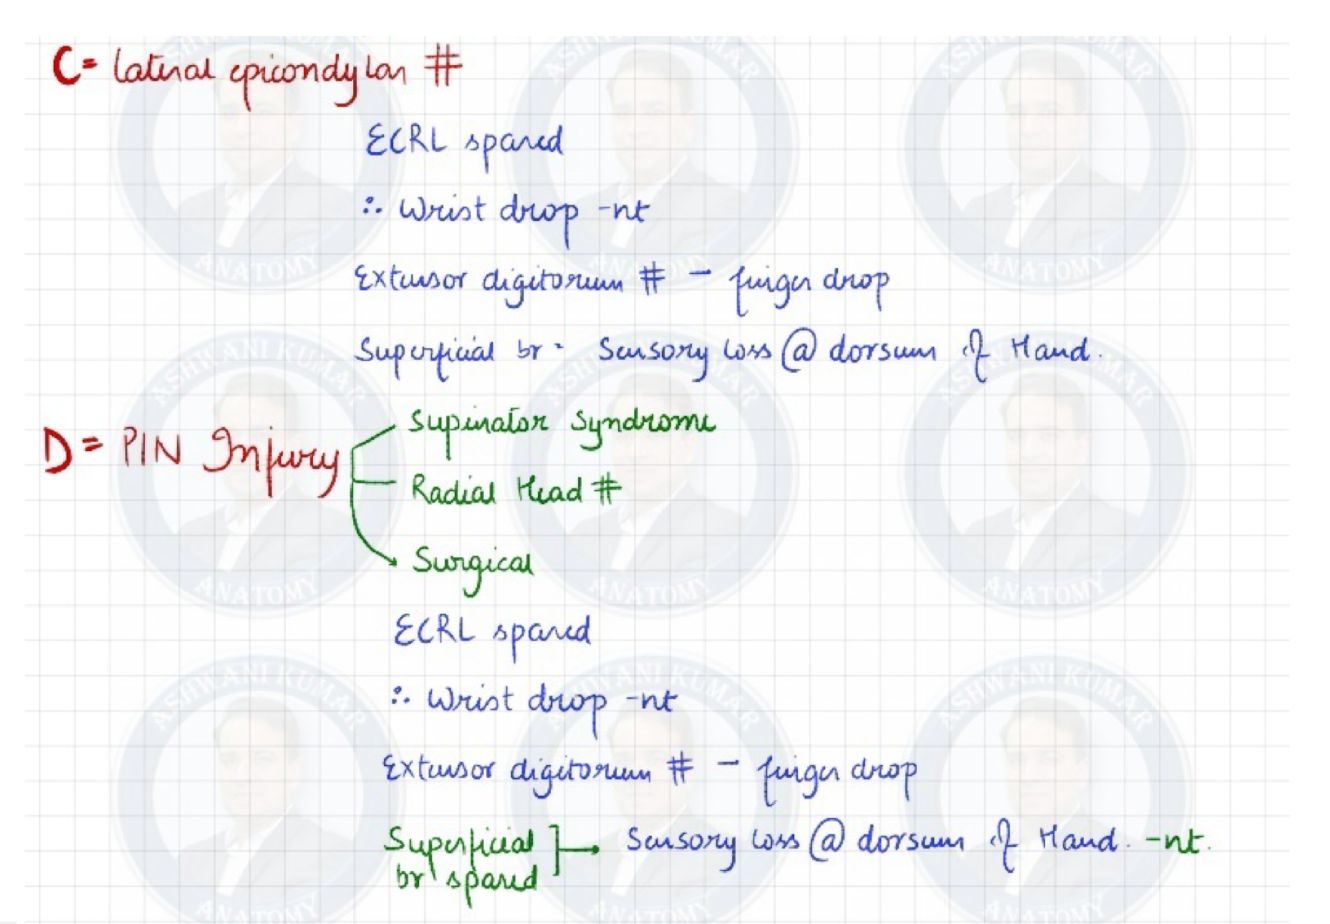 C = Lateral epicondylar #
ECRL spared
∴ Wrist drop -nt
Extensor digitorum # - finger drop
Superficial br - Sensory loss @ dorsum of Hand.
D = PIN Injury
Supinator Syndrome
Radial Head #
Surgical
ECRL spared
∴ Wrist drop -nt
Extensor digitorum # - finger drop
Superficial br spared → Sensory loss @ dorsum of Hand. -nt.
ASHWANI KUMAR
ANATOMY